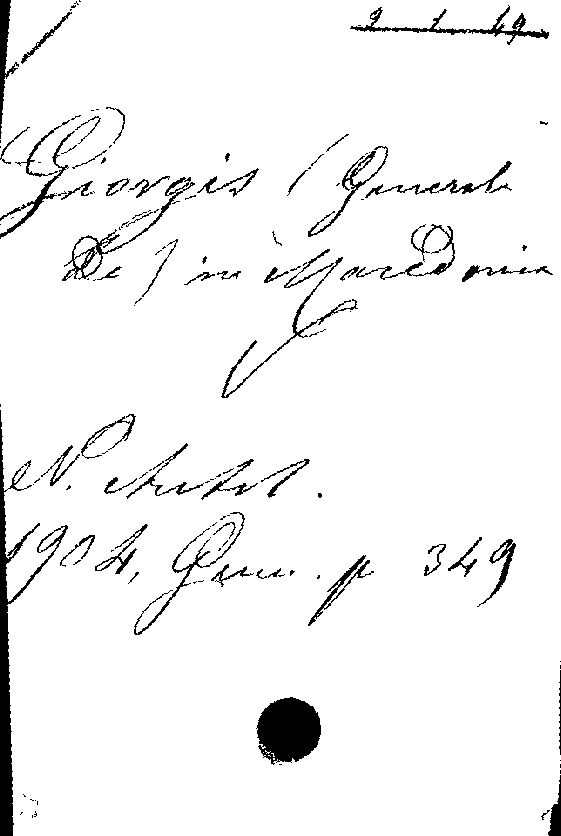 2 1 49
Giorgis (Generale
De) in Macedonia
N. Antol.
1904, Genn. p 349